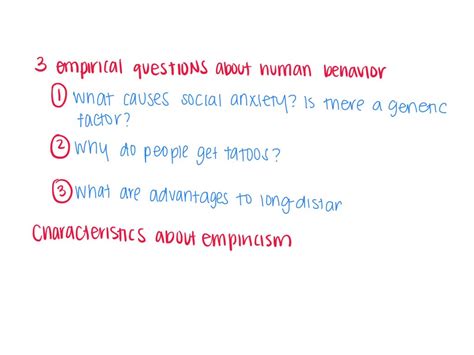 3 empirical questions about human behavior
① What causes social anxiety? Is there a genetic
factor?
② Why do people get tatoos?
③ What are advantages to long-distan
Characteristics about empiricism